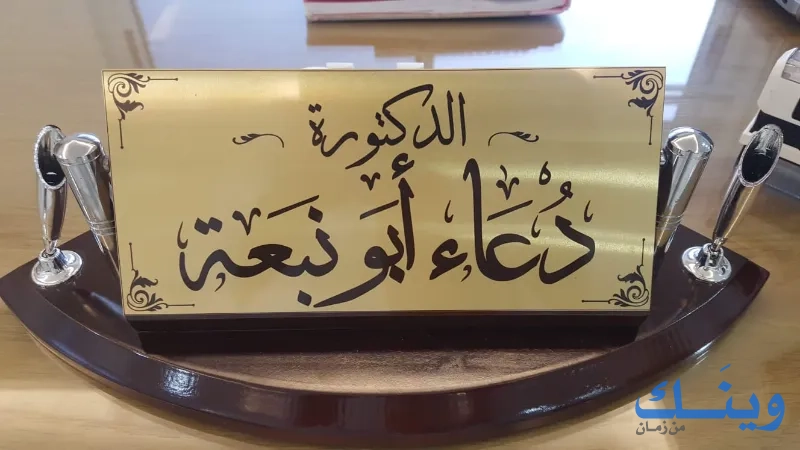 الدكتورة
دُعَاء أبَو نبَعة
وينَـك
من زمـان